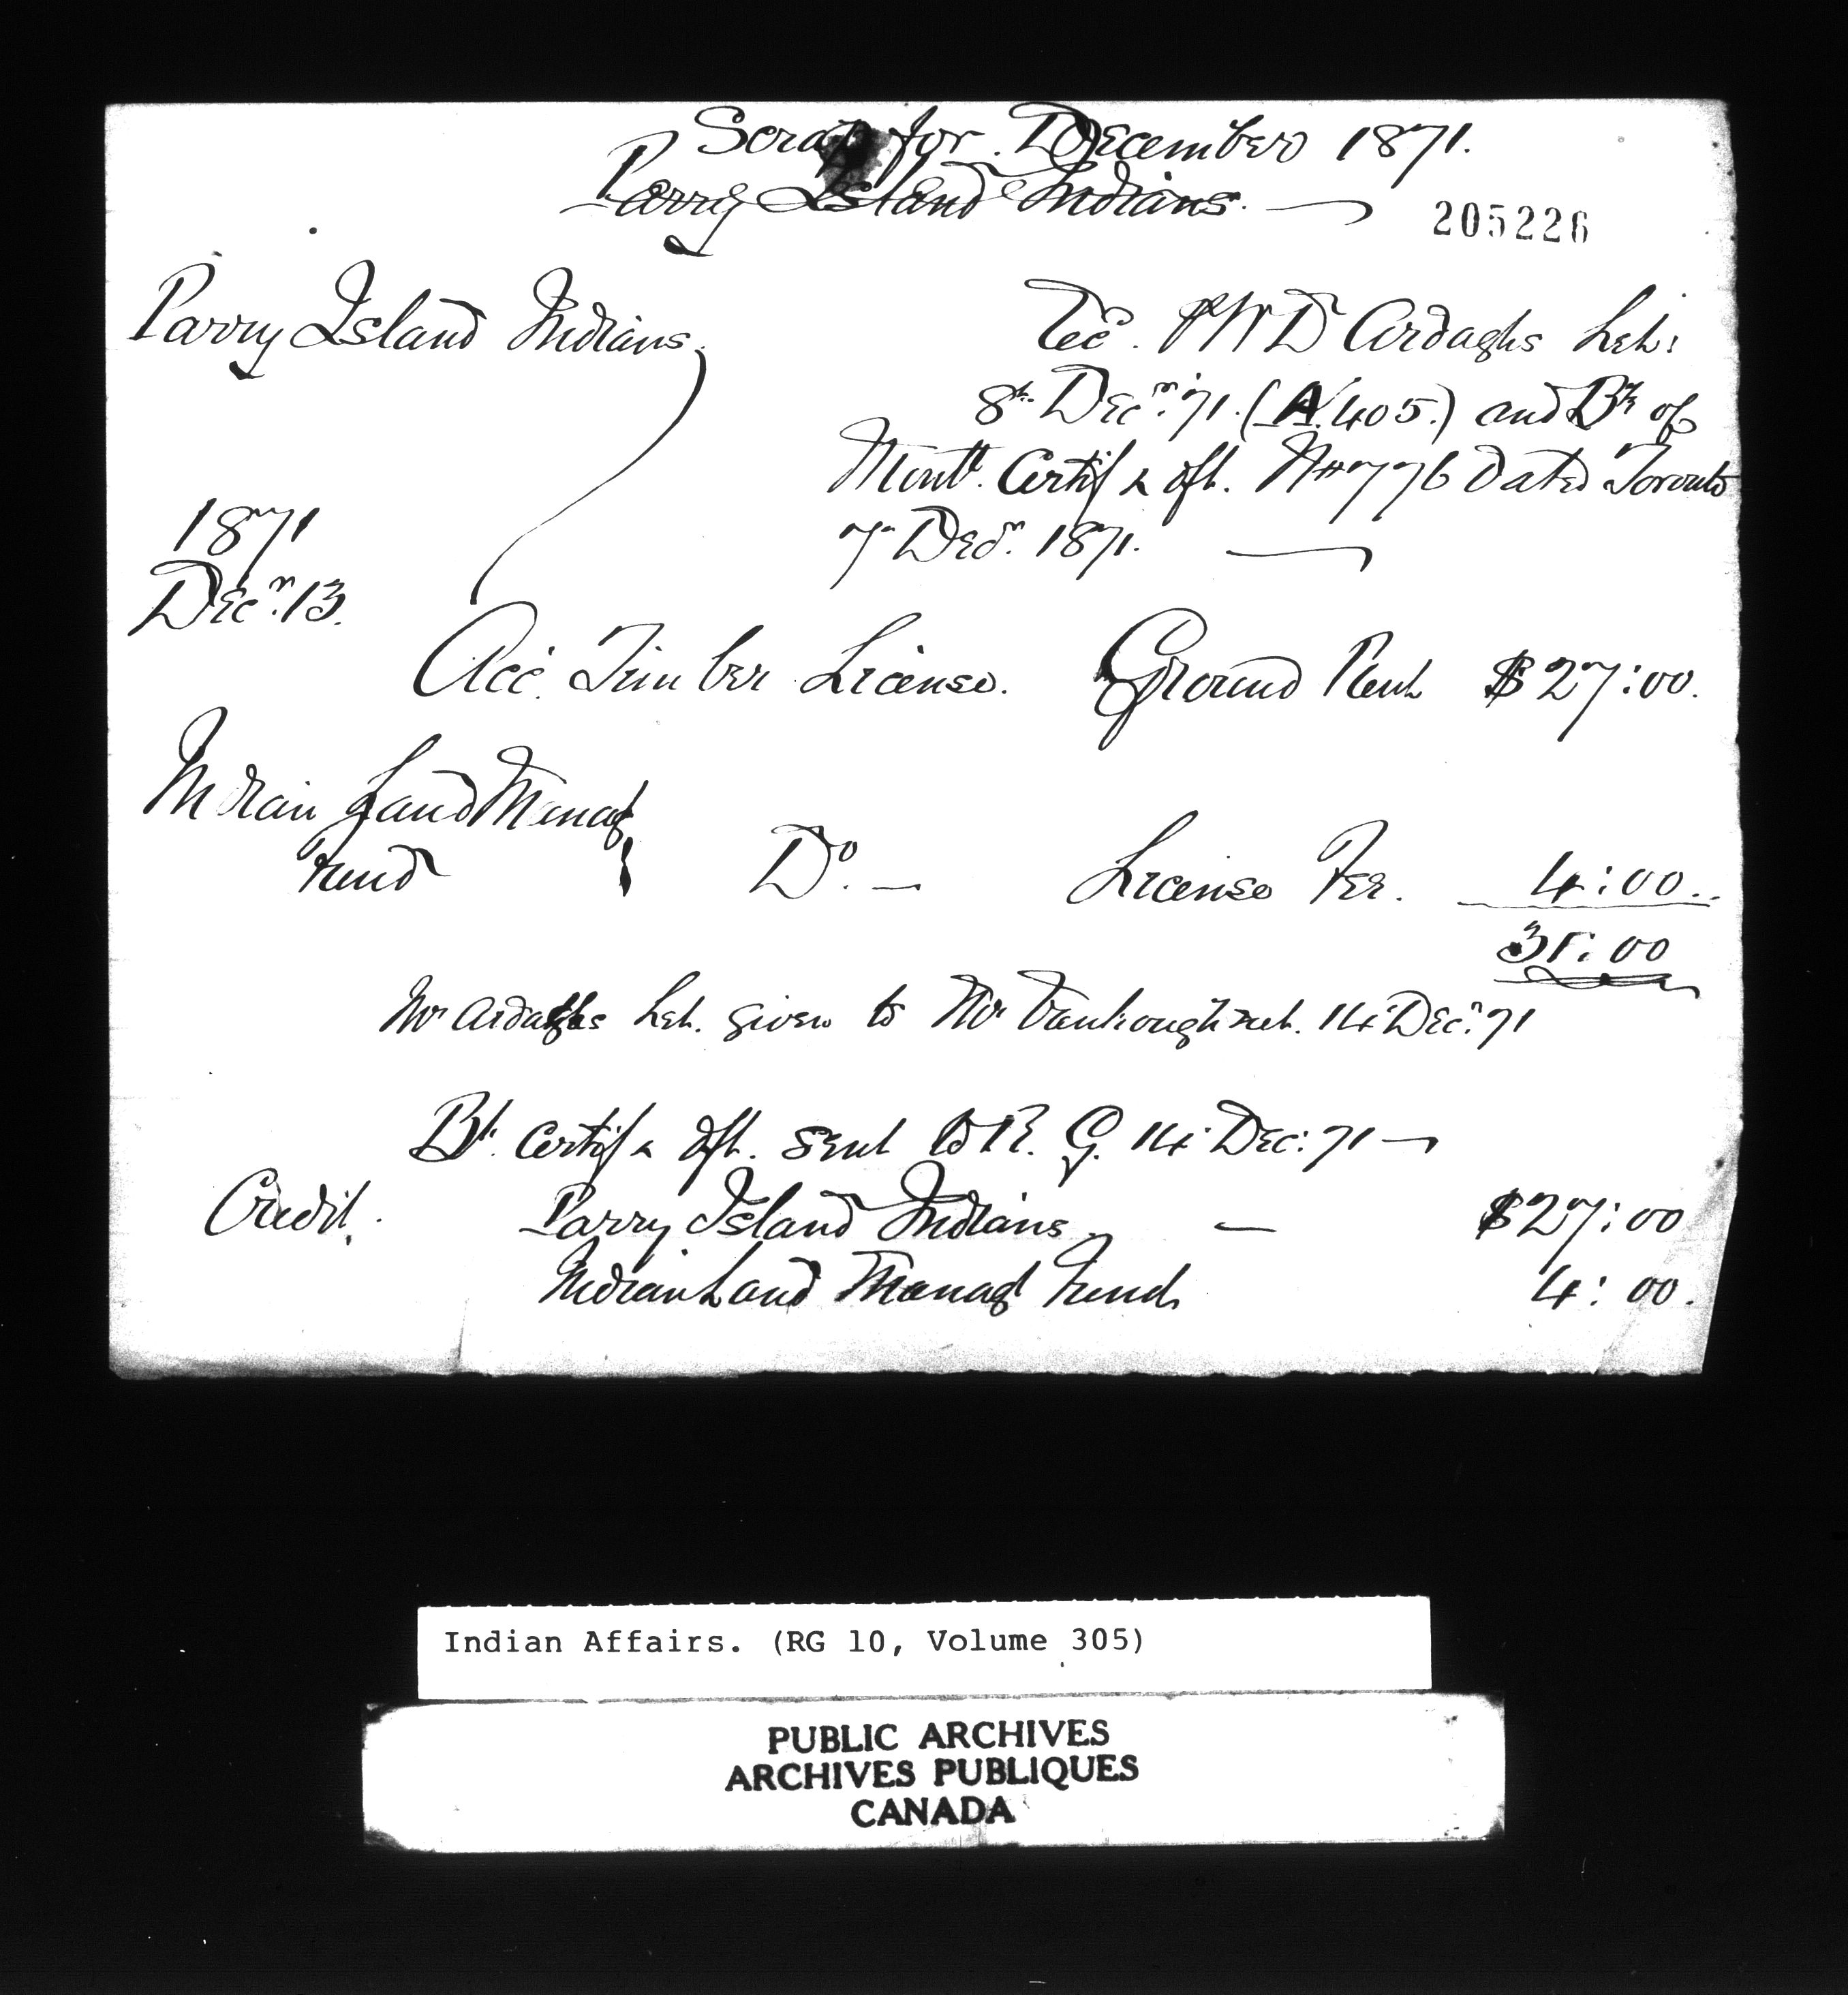 Scrap for December 1871.
Parry Island Indians. —
205226
Parry Island Indians.
Rec. P W D Ardaghs Let:
8th Decr. 71. (A. 405.) and Bk of
Montl. Certif & dft. No 776 dated Toronto
7th Decr. 1871. —
1871
Decr. 13.
Acc. Timber License. Ground Rent $27:00.
Indian Land Manag
Fund } Do. — License Fee. 4:00.
31:00
Mr Ardaghs Let. given to Mr Vankoughnet. 14 Decr. 71
Bk. Certif & dft. sent to R. G. 14 Dec: 71 —
Credit. Parry Island Indians — $27:00
Indian Land Manag Fund 4:00.
Indian Affairs. (RG 10, Volume 305)
PUBLIC ARCHIVES
ARCHIVES PUBLIQUES
CANADA